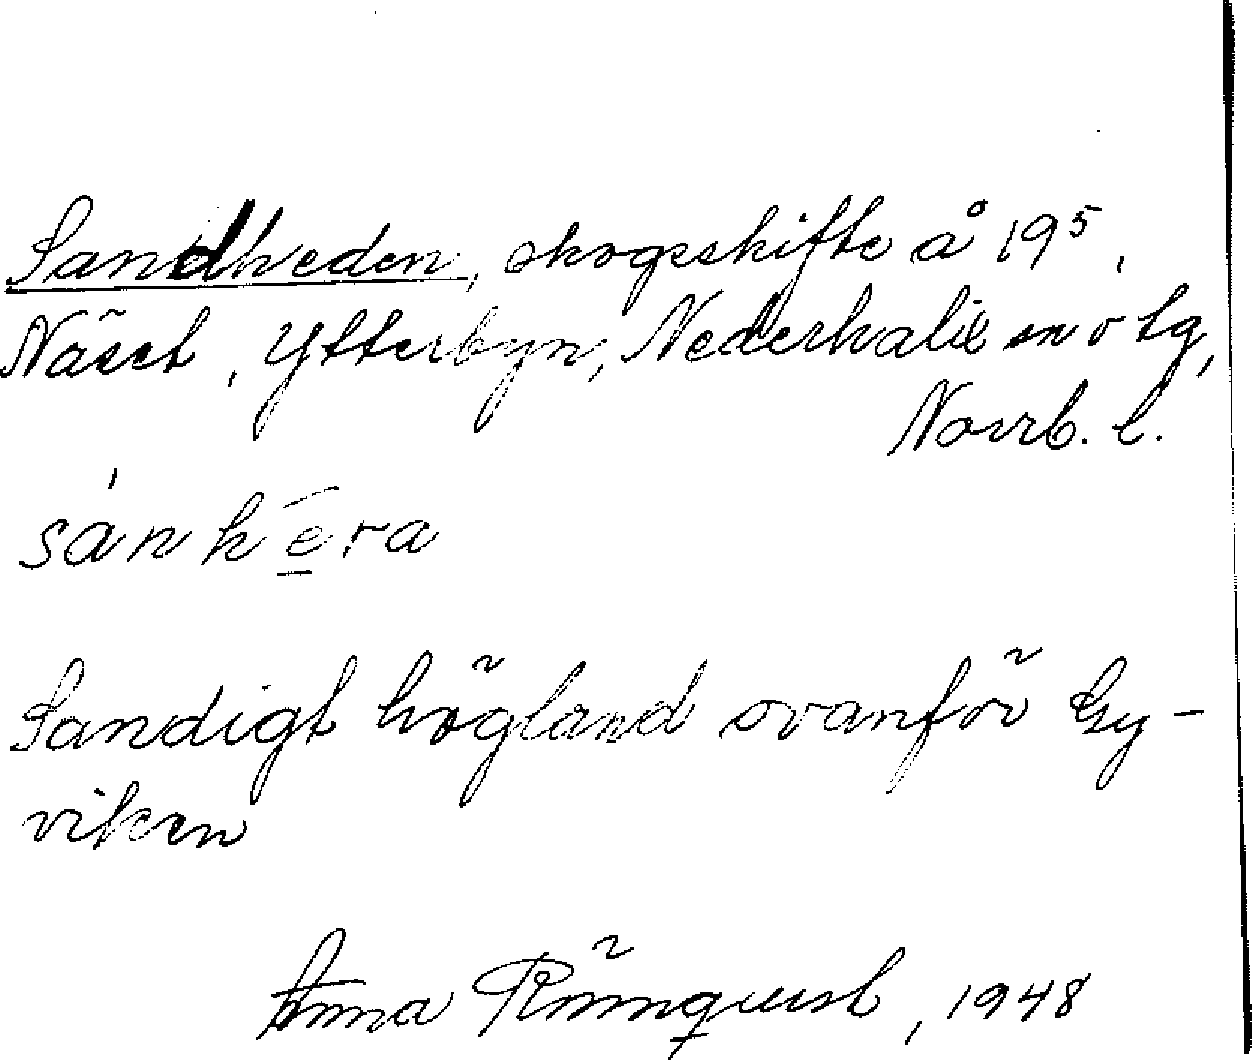 Sandheden, skogsskifte å 19⁵,
Näset, Ytterbyn, Nederkalix sn o tg,
Norrb. l.
Sandigt högland ovanför Gy-
viken
Anna Rönnqvist, 1948